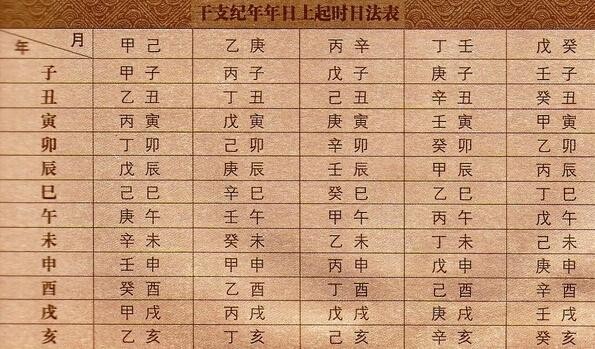 干支纪年年日上起时日法表
月 甲己 乙庚 丙辛 丁壬 戊癸
年
子 甲子 丙子 戊子 庚子 壬子
丑 乙丑 丁丑 己丑 辛丑 癸丑
寅 丙寅 戊寅 庚寅 壬寅 甲寅
卯 丁卯 己卯 辛卯 癸卯 乙卯
辰 戊辰 庚辰 壬辰 甲辰 丙辰
巳 己巳 辛巳 癸巳 乙巳 丁巳
午 庚午 壬午 甲午 丙午 戊午
未 辛未 癸未 乙未 丁未 己未
申 壬申 甲申 丙申 戊申 庚申
酉 癸酉 乙酉 丁酉 己酉 辛酉
戌 甲戌 丙戌 戊戌 庚戌 壬戌
亥 乙亥 丁亥 己亥 辛亥 癸亥